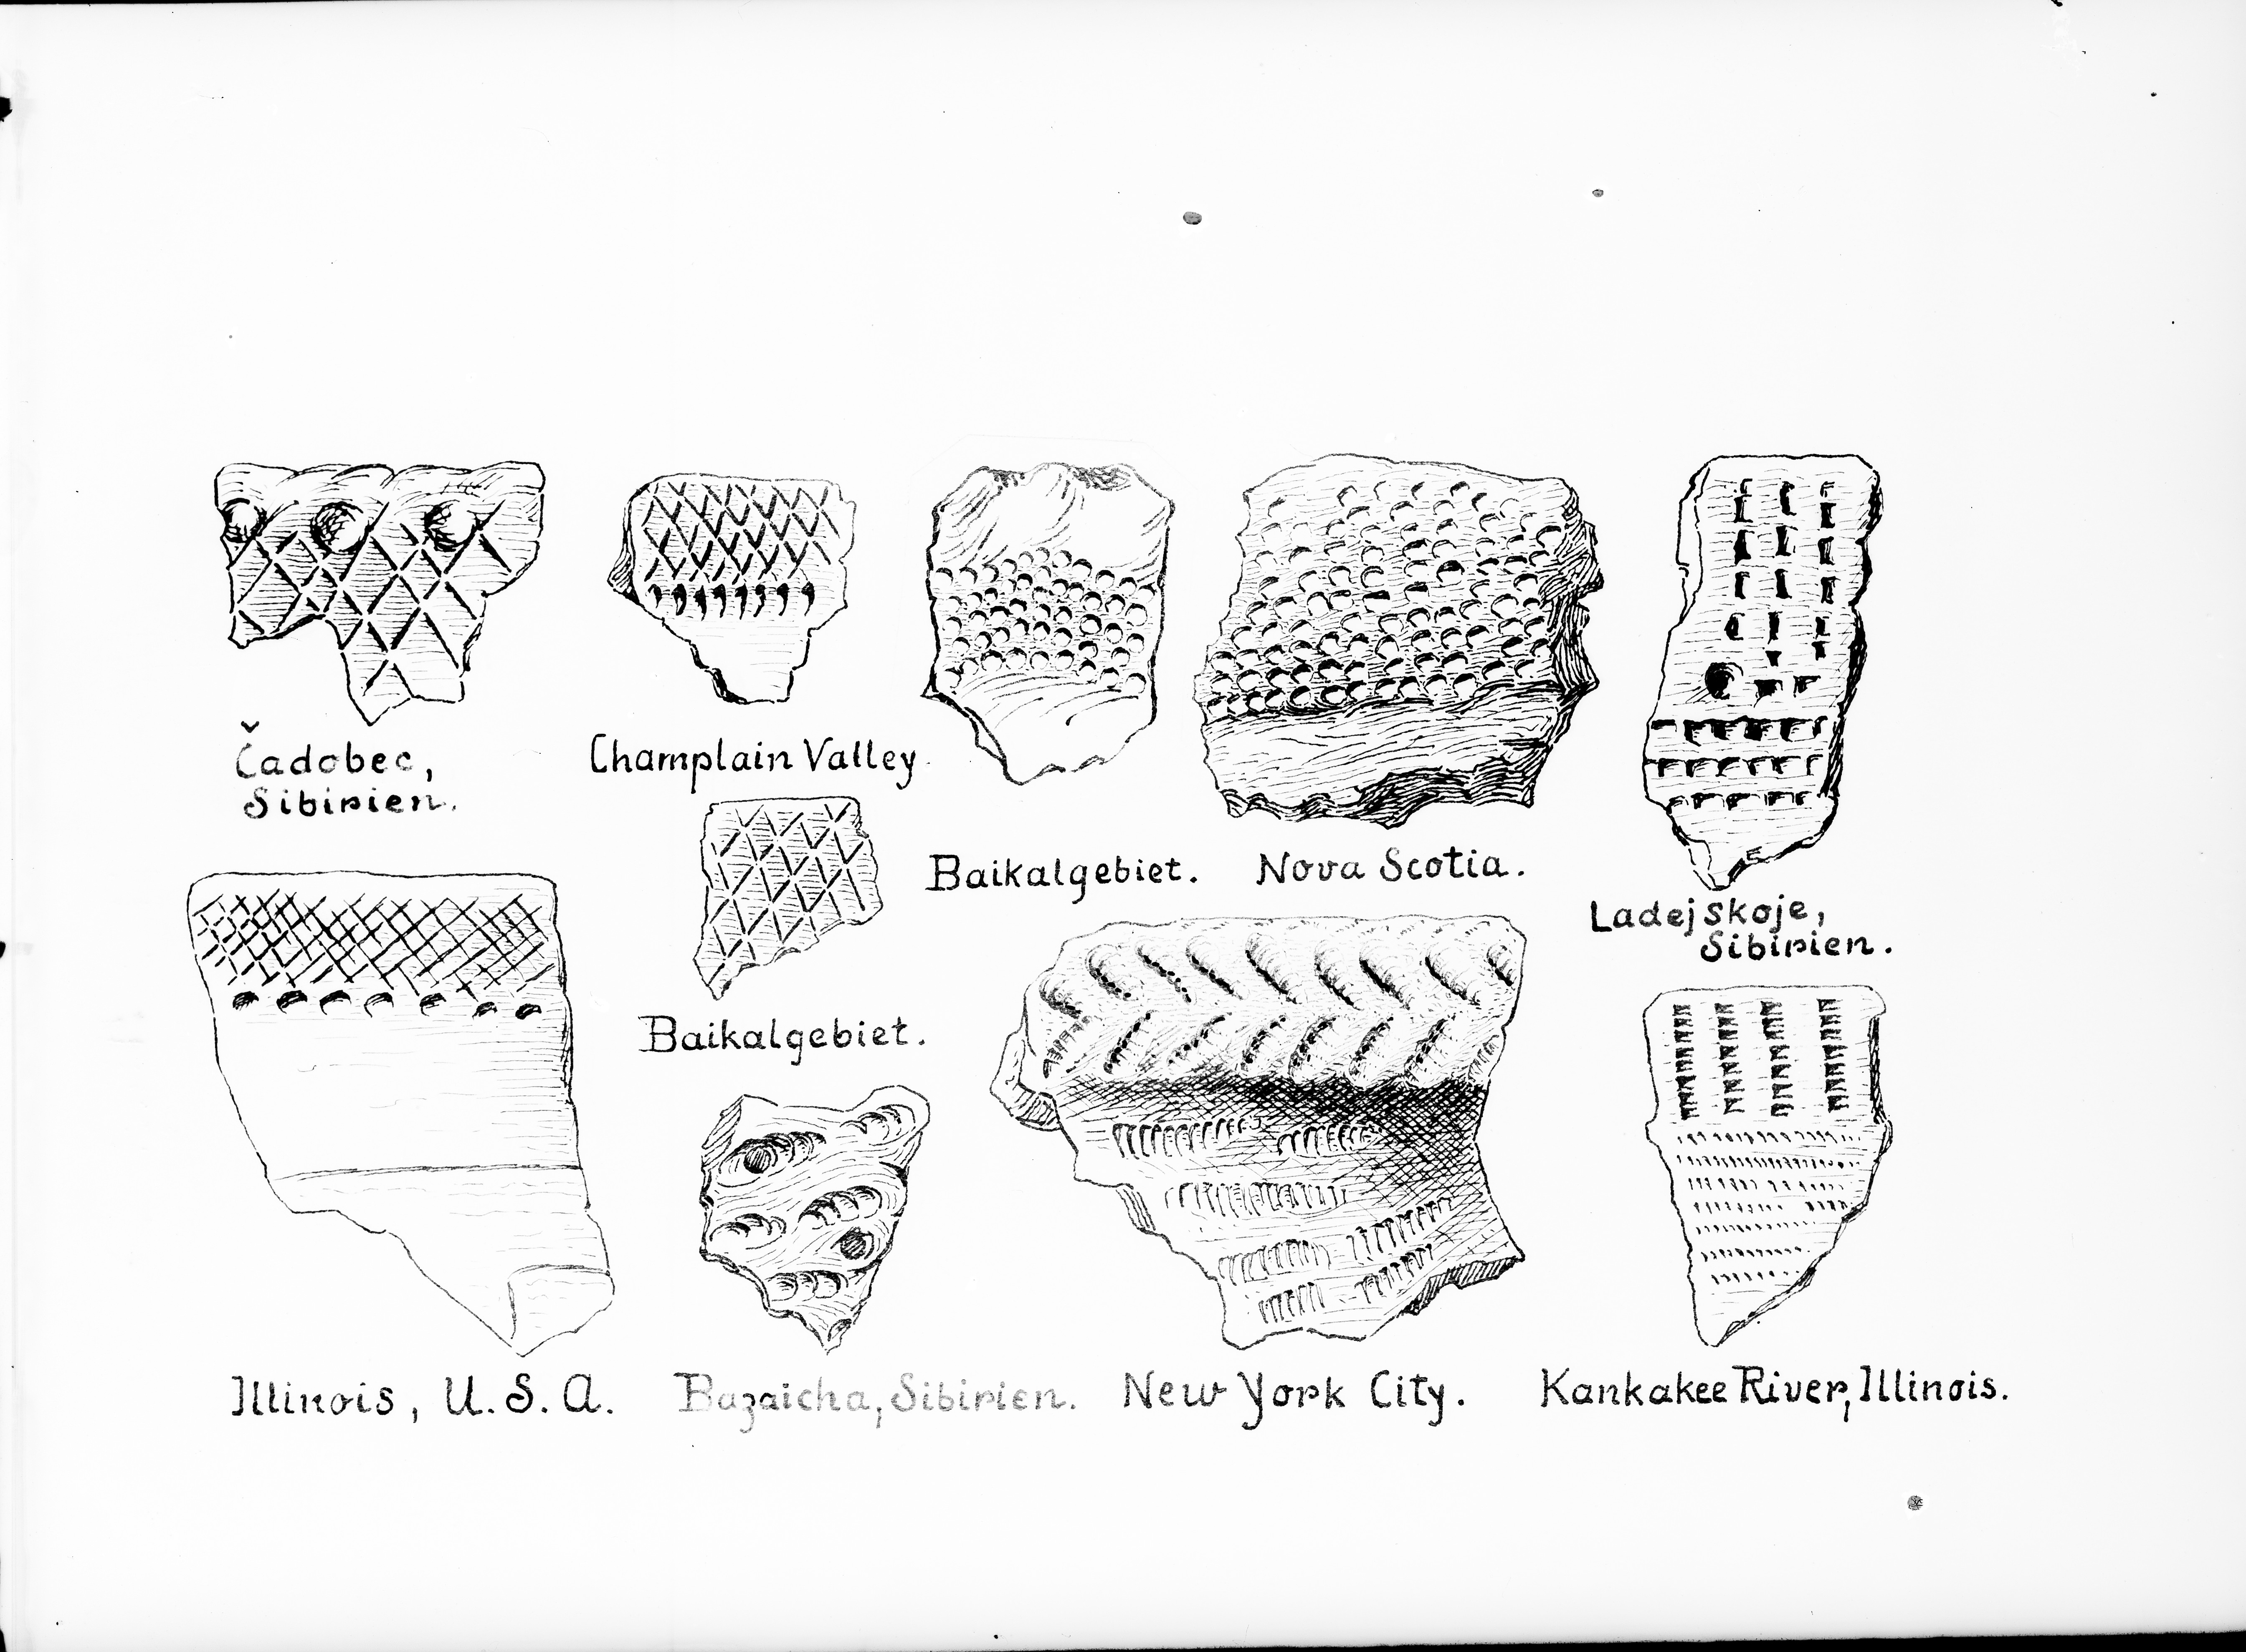 Čadobec,
Sibirien.
Champlain Valley.
Baikalgebiet.
Baikalgebiet.
Nova Scotia.
Ladejskoje,
Sibirien.
Illinois, U.S.A.
Bazaicha, Sibirien.
New York City.
Kankakee River, Illinois.